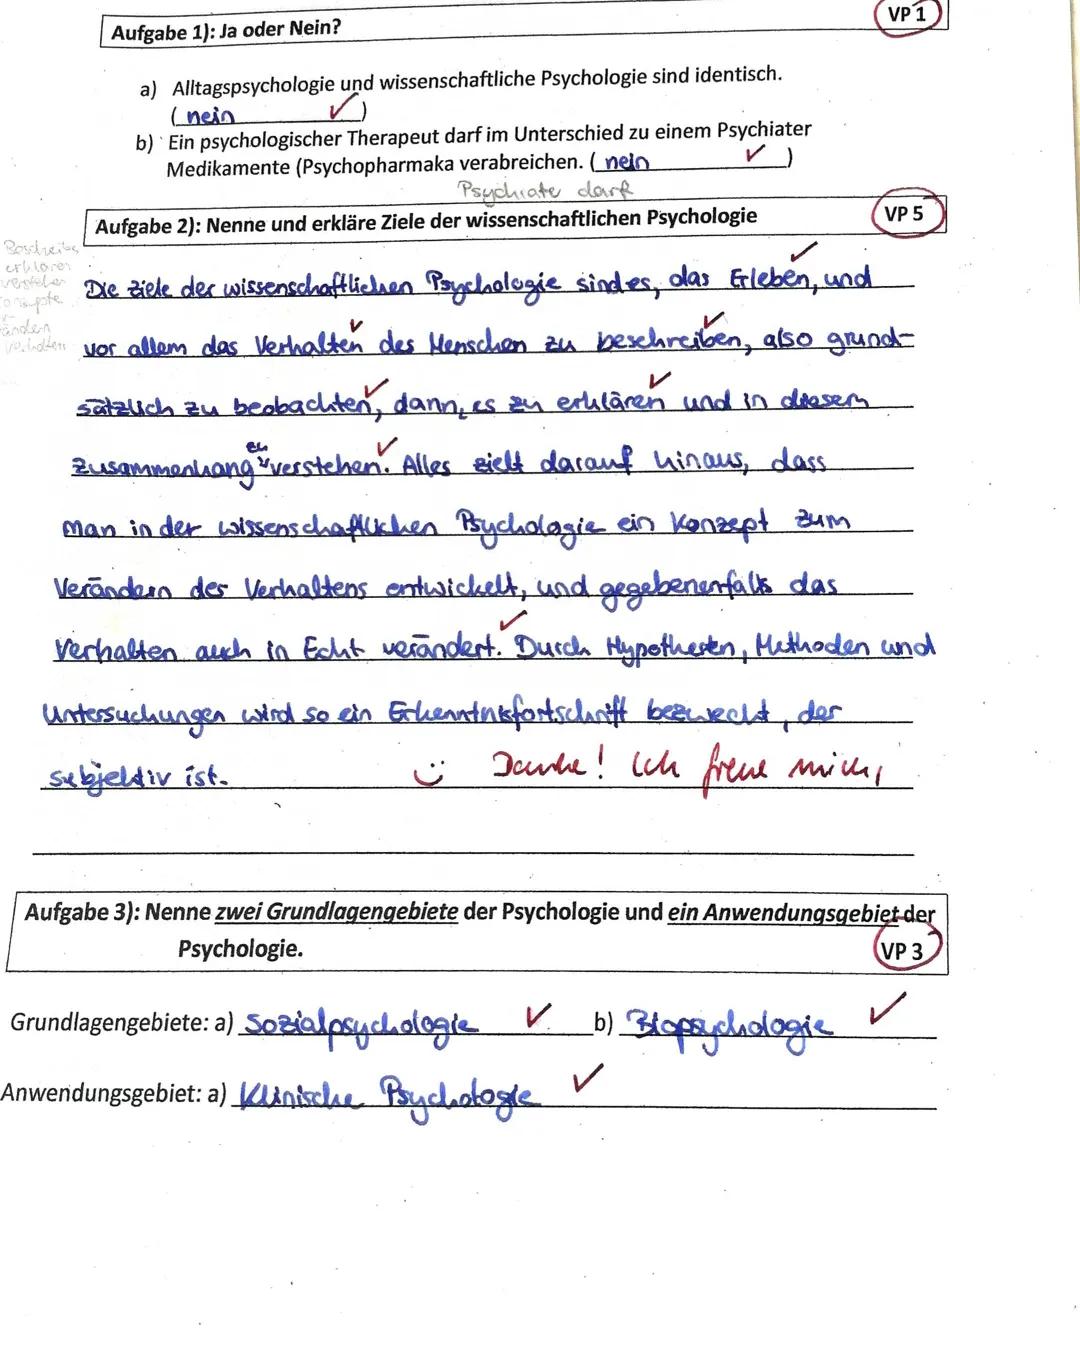 Aufgabe 1): Ja oder Nein?
VP 1
a) Alltagspsychologie und wissenschaftliche Psychologie sind identisch.
(nein ✓)
b) Ein psychologischer Therapeut darf im Unterschied zu einem Psychiater
Medikamente (Psychopharmaka verabreichen. (nein ✓)
Psychiate darf
Aufgabe 2): Nenne und erkläre Ziele der wissenschaftlichen Psychologie
VP 5
Die Ziele der wissenschaftlichen Psychologie sind es, das Erleben, und
vor allem das Verhalten des Menschen zu beschreiben, also grund-
sätzlich zu beobachten, dann, es zu erklären und in diesem
zu
Zusammenhang verstehen. Alles zielt darauf hinaus, dass
man in der wissenschaftlichen Psychologie ein Konzept zum
Verändern des Verhaltens entwickelt, und gegebenenfalls das
Verhalten auch in Echt verändert. Durch Hypothesen, Methoden und
Untersuchungen wird so ein Erkenntnisfortschritt bezweckt, der
subjektiv ist.
Danke! Ich freue mich,
Aufgabe 3): Nenne zwei Grundlagengebiete der Psychologie und ein Anwendungsgebiet der
Psychologie.
VP 3
Grundlagengebiete: a) Sozialpsychologie ✓ b) Biopsychologie ✓
Anwendungsgebiet: a) Klinische Psychologie ✓